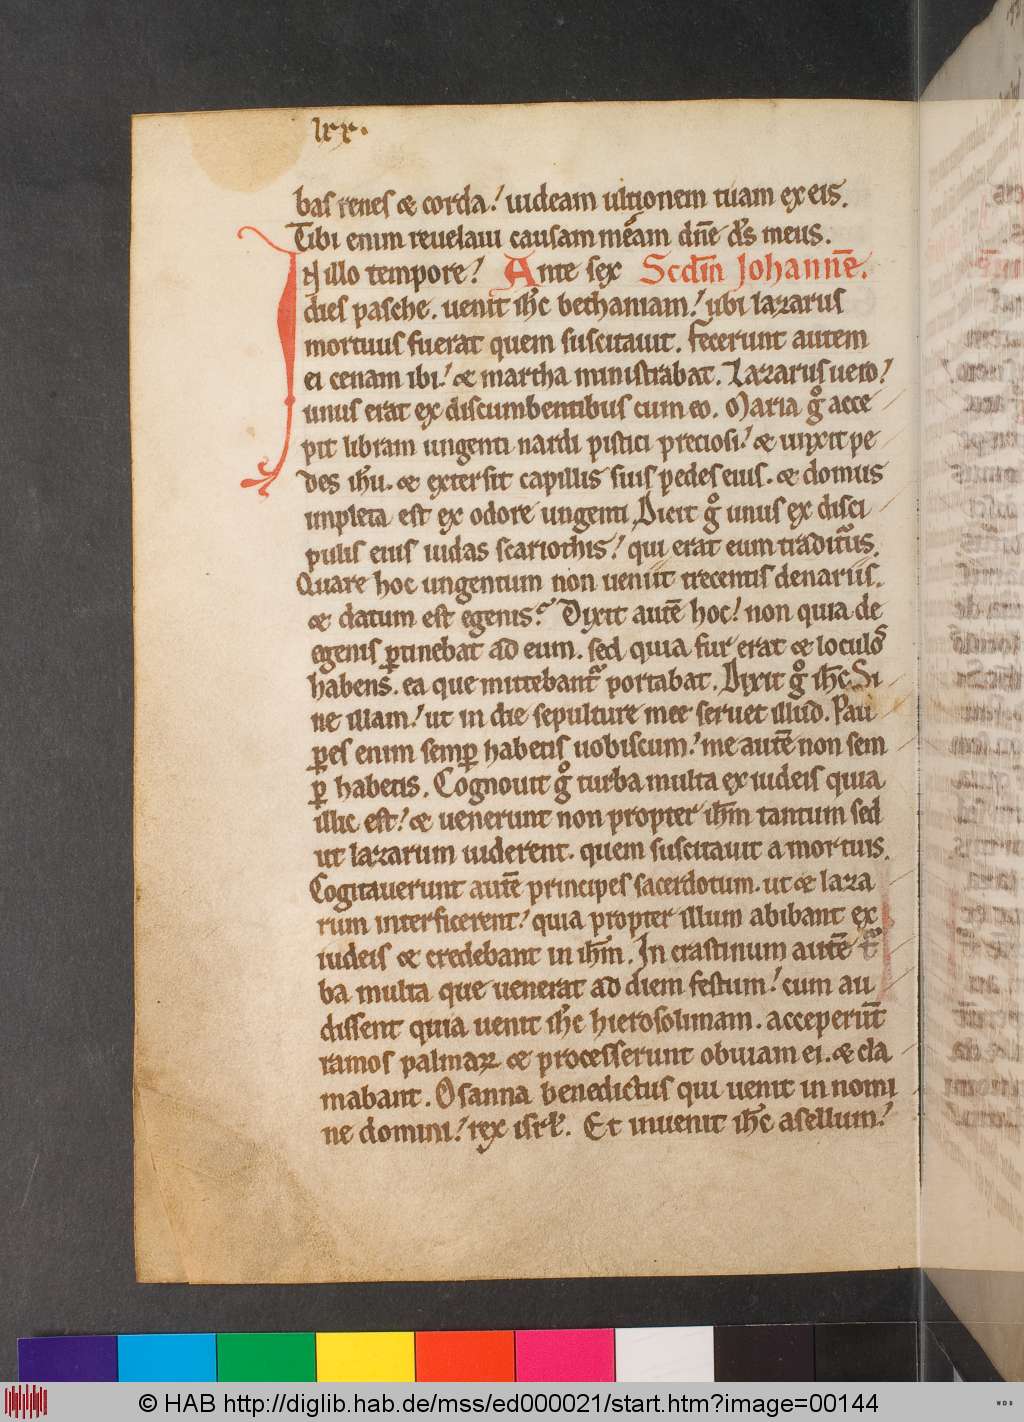 lxx.
bas renes & corda! uideam ultionem tuam ex eis.
Tibi enim reuelaui causam meam dn̄e ds̄ meus.
IN illo tempore! Ante sex Scdm̄ Johanne᷑.
dies pasche. uenit ih̄c bethaniam! ubi lazarus
mortuus fuerat quem suscitauit. Fecerunt autem
ei cenam ibi! & martha ministrabat. Lazarus uero!
unus erat ex discumbentibus cum eo. Maria gͦ acce
pit libram ungenti nardi pistici preciosi! & unxit pe
des ih̄u. & extersit capillis suis pedes eius. & domus
impleta est ex odore ungenti. Dicit gͦ unus ex disci
pulis eius iudas scariothis! qui erat eum traditurus.
Quare hoc ungentum non ueniit trecentis denariis.
& datum est egenis? Dixit autē hoc! non quia de
egenis ꝑtinebat ad eum. sed quia fur erat & loculos
habens. ea que mittebant᷑ portabat. Dixit gͦ ih̄c Si
ne illam! ut in die sepulture mee seruet illud. Pau
ꝑes enim semꝑ habetis uobiscum! me autē non sem
ꝑ habetis. Cognouit gͦ turba multa ex iudeis quia
illic est! & uenerunt non propter ih̄m tantum sed
ut lazarum uiderent. quem suscitauit a mortuis.
Cogitauerunt autē principes sacerdotum. ut & laza
rum interficerent! quia propter illum abibant ex
iudeis & credebant in ih̄m. In crastinum autē t᷑
ba multa que uenerat ad diem festum! cum au
dissent quia uenit ih̄c hierosolimam. acceperūt
ramos palmaꝝ & processerunt obuiam ei. & cla
mabant. Osanna benedictus qui uenit in nomi
ne domini! rex isrł. Et inuenit ih̄c asellum!
© HAB http://diglib.hab.de/mss/ed000021/start.htm?image=00144